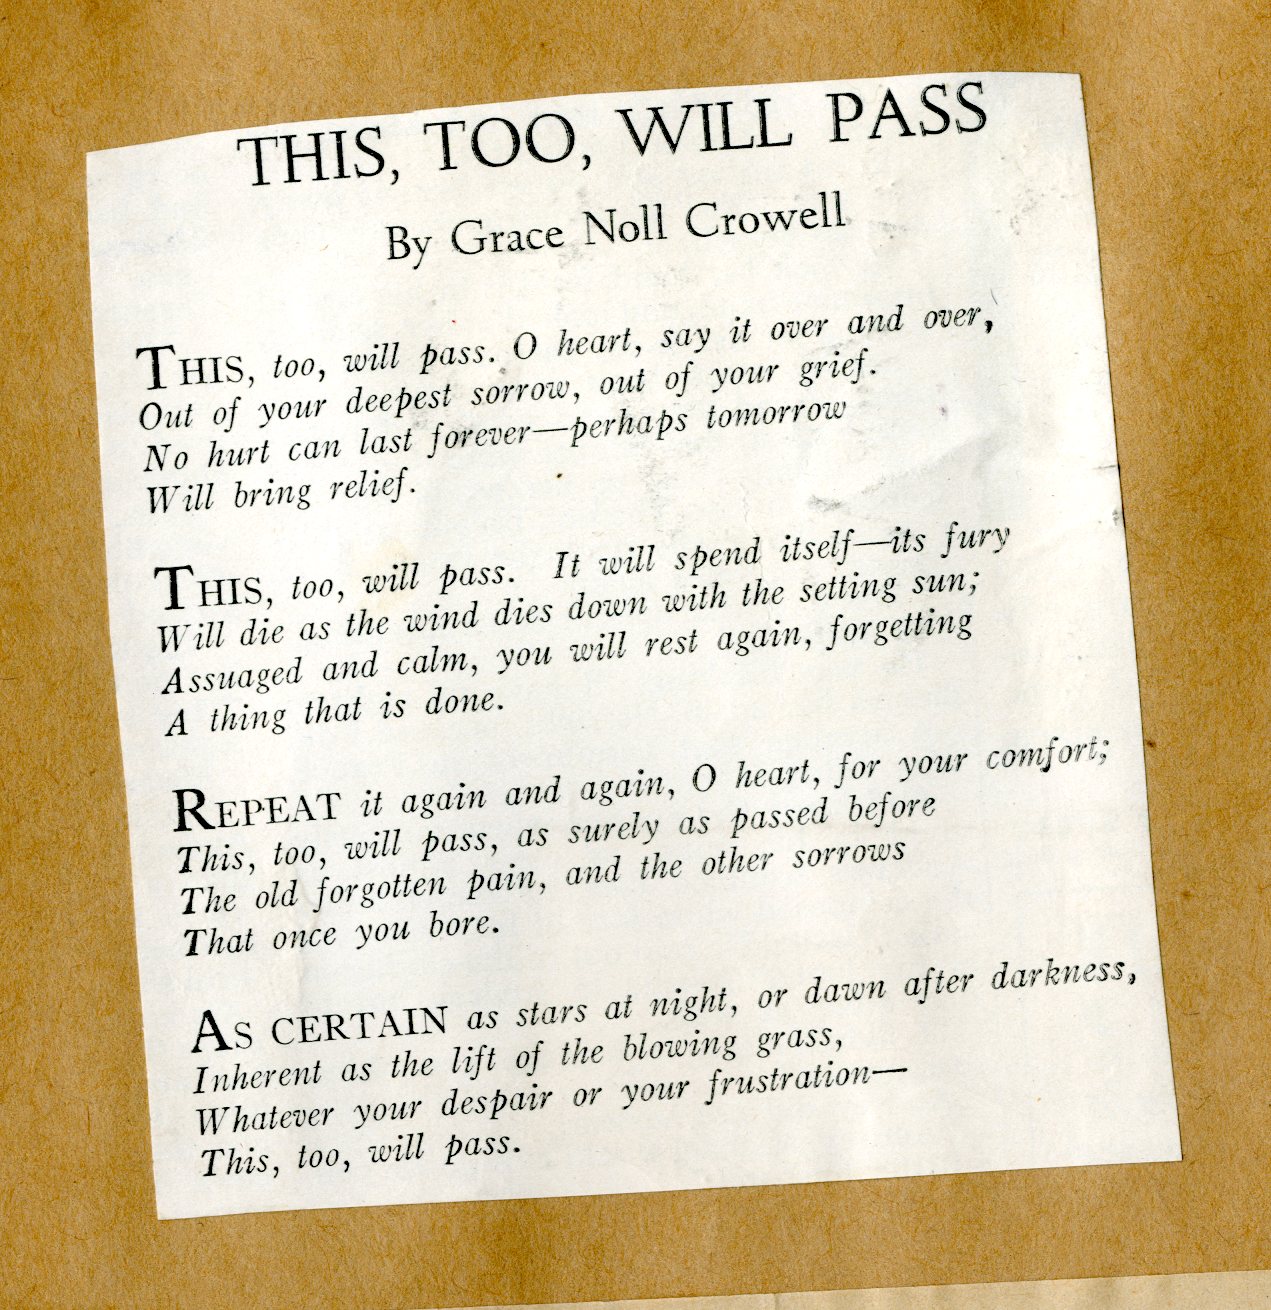 THIS, TOO, WILL PASS
By Grace Noll Crowell
THIS, too, will pass. O heart, say it over and over,
Out of your deepest sorrow, out of your grief.
No hurt can last forever—perhaps tomorrow
Will bring relief.
THIS, too, will pass. It will spend itself—its fury
Will die as the wind dies down with the setting sun;
Assuaged and calm, you will rest again, forgetting
A thing that is done.
REPEAT it again and again, O heart, for your comfort;
This, too, will pass, as surely as passed before
The old forgotten pain, and the other sorrows
That once you bore.
AS CERTAIN as stars at night, or dawn after darkness,
Inherent as the lift of the blowing grass,
Whatever your despair or your frustration—
This, too, will pass.